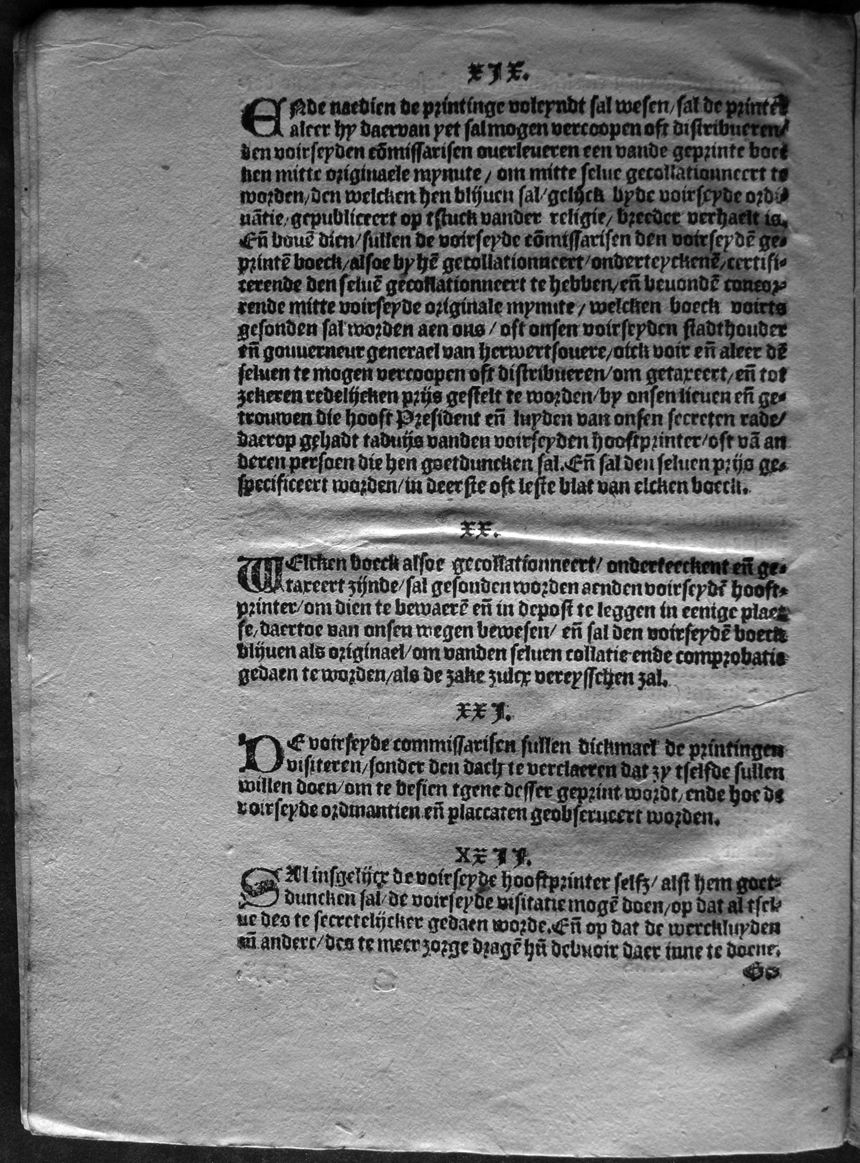 XIX.
ENde naedien de printinge voleyndt sal wesen/sal de printer
aleer hy daervan yet sal mogen vercoopen oft distribueren/
den voirseyden cõmissarisen overleveren een vande geprinte boec
ken mitte originaele mynute/ om mitte selve gecollationneert te
worden/den welcken hen blijven sal/gelijck byde voirseyde ordi
uãtie/gepubliceert op tstuck vander religie/ breeder verhaelt is.
Eñ bouẽ dien/sullen de voirseyde cõmissarisen den voirseydẽ ge-
printẽ boeck/alsoe by hẽ gecollationneert/onderteyckenẽ/certifi-
cerende den seluẽ gecollationneert te hebben/eñ beuondẽ concor-
rende mitte voirseyde originale mynute/ welcken boeck voirts
gesonden sal worden aen ons/ oft onsen voirseyden stadthouder
eñ gouuerneur generael van herwertsouere/oick voir eñ aleer dẽ
seluen te mogen vercoopen oft distribueren/om getaxeert/eñ tot
zekeren redelijcken prijs gestelt te worden/by onsen lieuen eñ ge-
trouwen die hooft President eñ luyden van onsen secreten rade/
daerop gehadt taduijs vanden voirseyden hooftprinter/oft vã an
deren persoen die hen goetduncken sal.Eñ sal den seluen prijs ge-
specificeert worden/in deerste oft leste blat van elcken boeck.
XX.
WElcken boeck alsoe gecollationneert/ onderteeckent eñ ge-
taxeert zijnde/sal gesonden worden aenden voirseydẽ hooft-
printer/om dien te bewaerẽ eñ in depost te leggen in eenige plaet
se/daertoe van onsen wegen bewesen/ eñ sal den voirseydẽ boeck
blijuen als originael/om vanden seluen collatie ende comprobatie
gedaen te worden/als de zake zulcx vereysschen zal.
XXI.
DE voirseyde commissarisen sullen dickmael de printingen
visiteren/sonder den dach te verclaeren dat zy tselfde sullen
willen doen/om te besien tgene desser geprint wordt/ende hoe de
voirseyde ordinantien eñ placcaten geobserueert worden.
XXII.
SAl insgelijcx de voirseyde hooftprinter selfz/ alst hem goet-
duncken sal/de voirseyde visitatie mogẽ doen/op dat al tsel-
ue des te secretelijcker gedaen worde.Eñ op dat de werckluyden
eñ andere/des te meer zorge dragẽ hũ debuoir daer inne te doene.